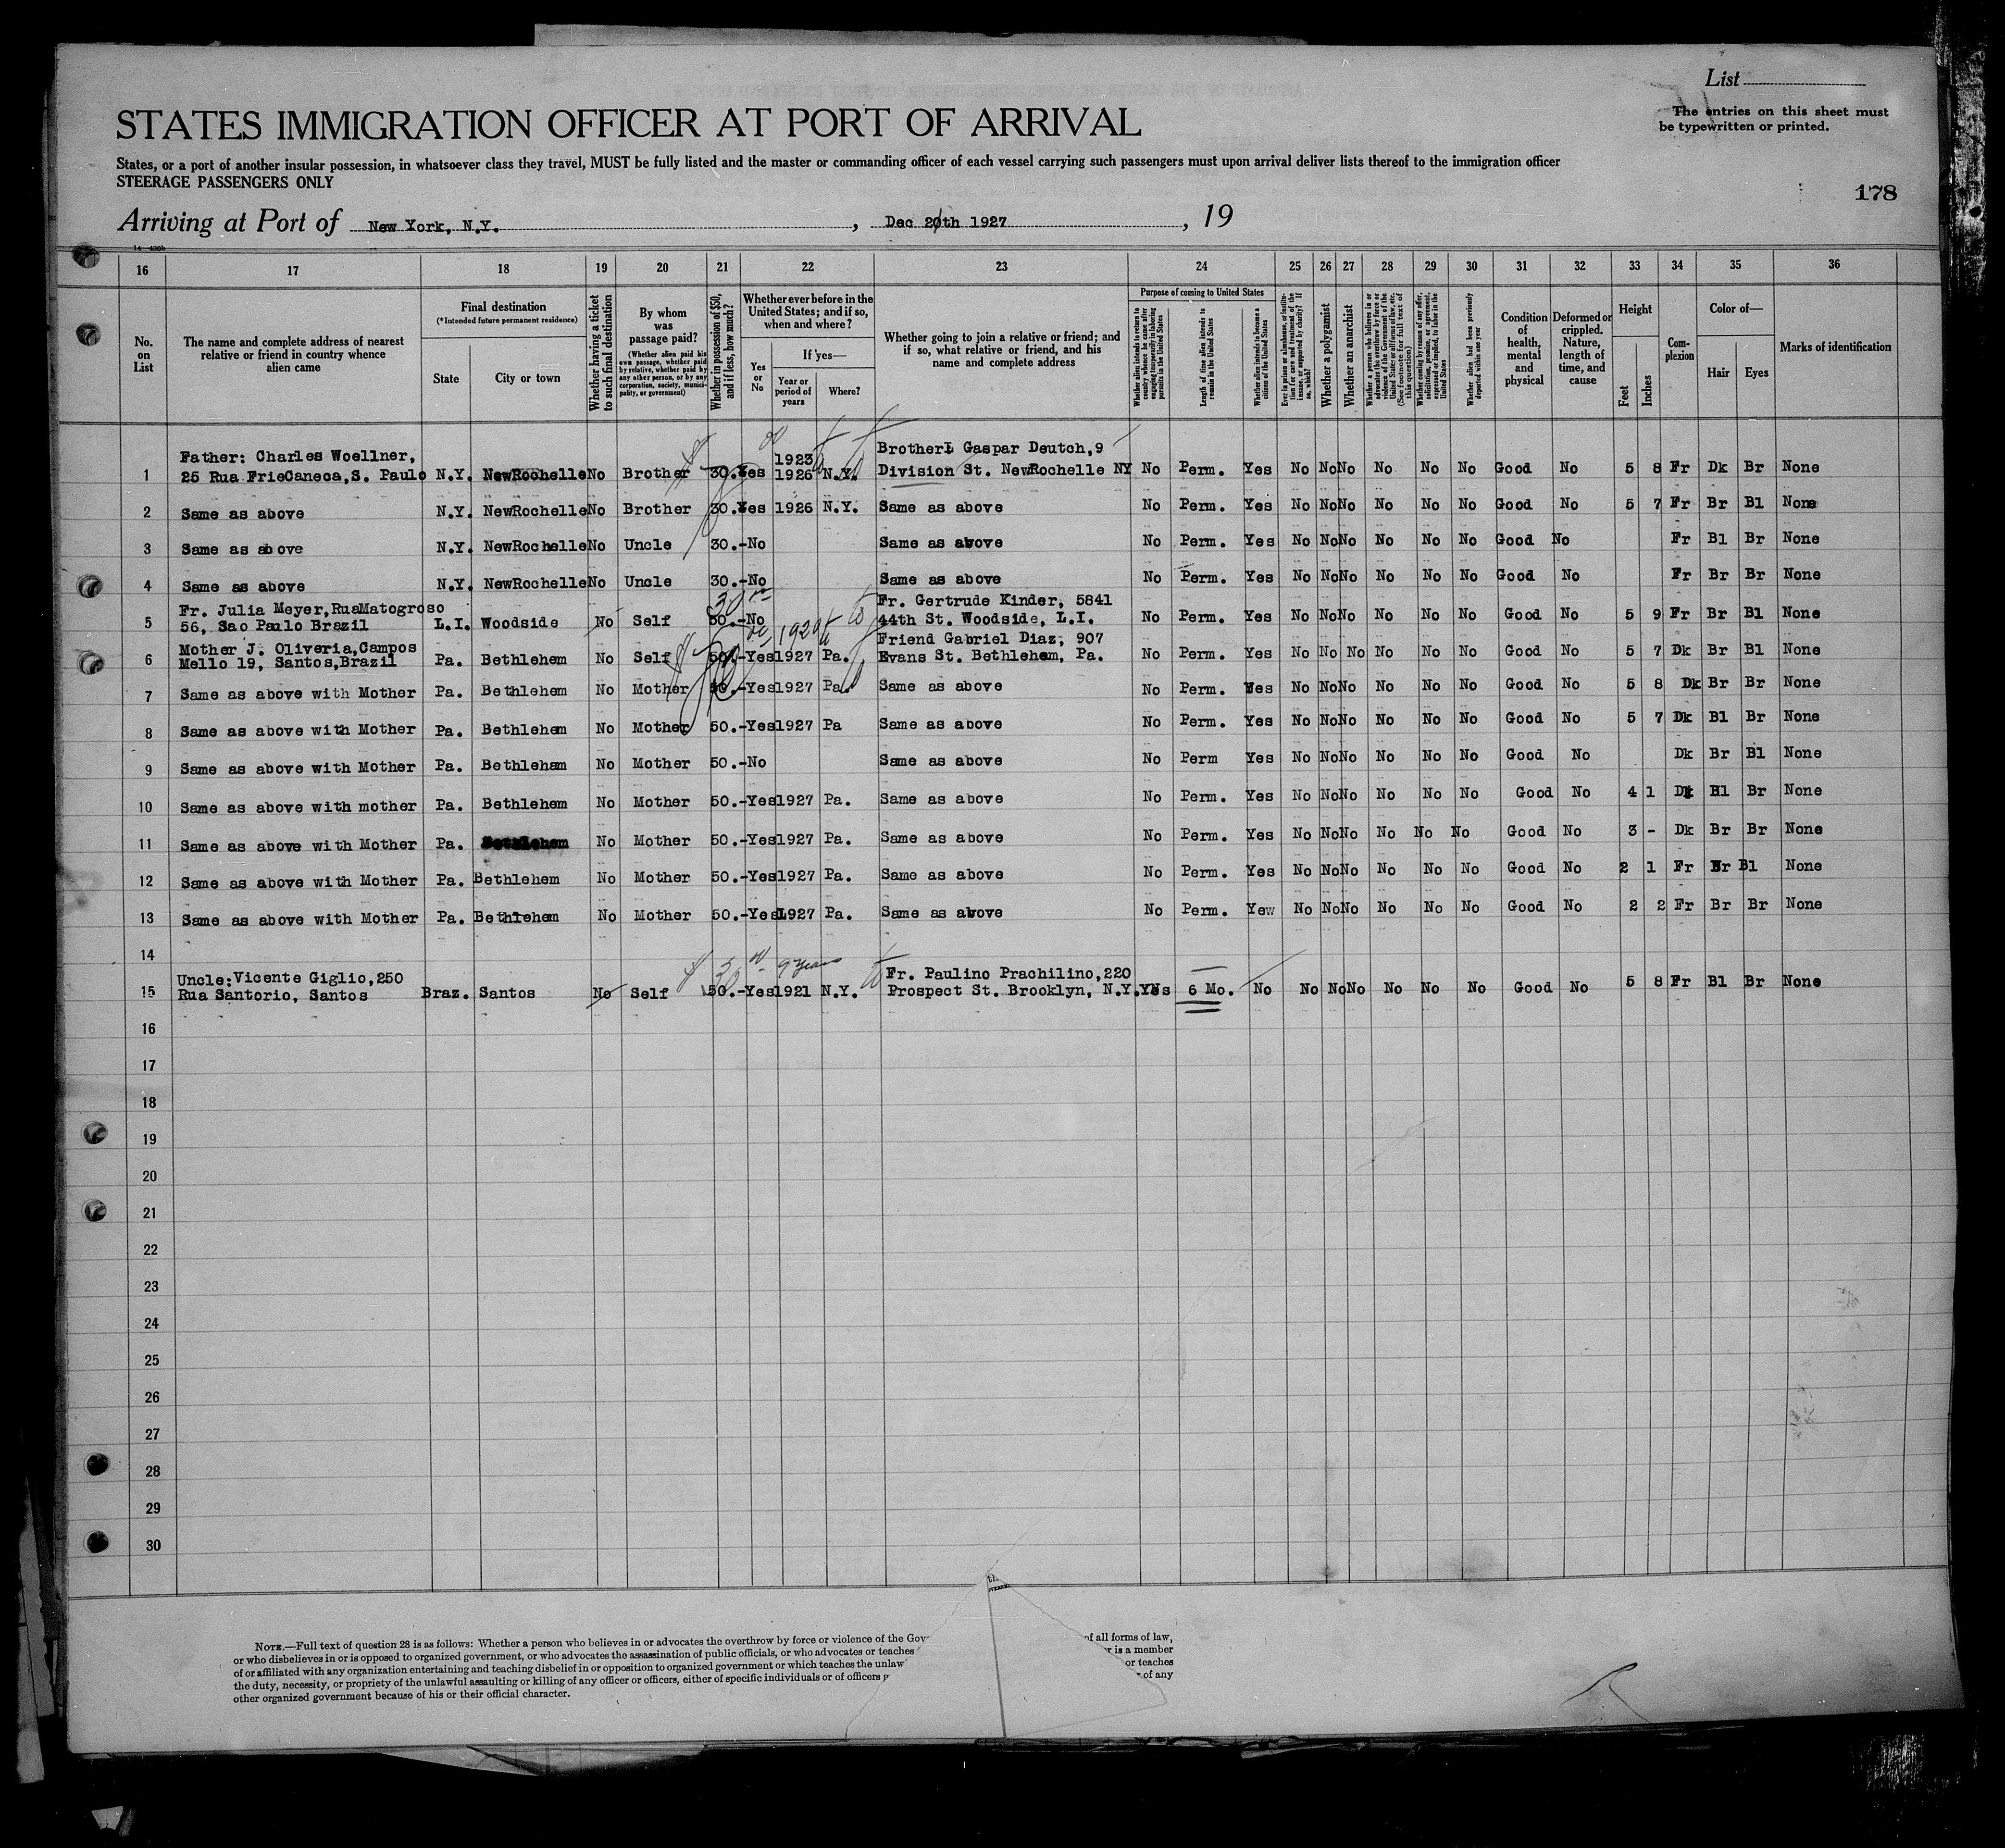 List
The entries on this sheet must
be typewritten or printed.
STATES IMMIGRATION OFFICER AT PORT OF ARRIVAL
States, or a port of another insular possession, in whatsoever class they travel, MUST be fully listed and the master or commanding officer of each vessel carrying such passengers must upon arrival deliver lists thereof to the immigration officer
STEERAGE PASSENGERS ONLY
178
Arriving at Port of New York, N.Y. , Dec 20th 1927 , 19
14—430b
16 17 18 19 20 21 22 23 24 25 26 27 28 29 30 31 32 33 34 35 36
No. on List
The name and complete address of nearest relative or friend in country whence alien came
Final destination
(*Intended future permanent residence)
State City or town
Whether having a ticket to such final destination
By whom was passage paid?
(Whether alien paid his own passage, whether paid by relative, whether paid by any other person, or by any corporation, society, municipality, or government)
Whether in possession of $50, and if less, how much?
Whether ever before in the United States; and if so, when and where?
Yes or No
If yes—
Year or period of years Where?
Whether going to join a relative or friend; and if so, what relative or friend, and his name and complete address
Purpose of coming to United States
Whether alien intends to return to country whence he came after engaging temporarily in laboring pursuits in the United States
Length of time alien intends to remain in the United States
Whether alien intends to become a citizen of the United States
Ever in prison or almshouse, or institution for care and treatment of the insane, or supported by charity? If so, which?
Whether a polygamist
Whether an anarchist
Whether a person who believes in or advocates the overthrow by force or violence of the Government of the United States or all forms of law, etc. (See footnote for full text of this question)
Whether coming by reason of any offer, solicitation, promise, or agreement, expressed or implied, to labor in the United States
Whether alien had been previously deported within one year
Condition of health, mental and physical
Deformed or crippled. Nature, length of time, and cause
Height
Feet Inches
Complexion
Color of—
Hair Eyes
Marks of identification
Father: Charles Woellner, 1923 Brother: Gaspar Deutch, 9
1 25 Rua FrieCaneca, S. Paulo N.Y. NewRochelle No Brother 30. Yes 1926 N.Y. Division St. NewRochelle NY No Perm. Yes No No No No No No Good No 5 8 Fr Dk Br None
2 Same as above N.Y. NewRochelle No Brother 30. Yes 1926 N.Y. Same as above No Perm. Yes No No No No No No Good No 5 7 Fr Br Bl None
3 Same as above N.Y. NewRochelle No Uncle 30.- No Same as above No Perm. Yes No No No No No No Good No Fr Bl Br None
4 Same as above N.Y. NewRochelle No Uncle 30.- No Same as above No Perm. Yes No No No No No No Good No Fr Br Br None
Fr. Julia Meyer, RuaMatogroso 30 Fr. Gertrude Kinder, 5841
5 56, Sao Paulo Brazil L.I. Woodside No Self 50.- No 44th St. Woodside, L.I. No Perm. Yes No No No No No No Good No 5 9 Fr Br Bl None
Mother J. Oliveria, Campos Friend Gabriel Diaz, 907
6 Mello 19, Santos, Brazil Pa. Bethlehem No Self 50.- Yes 1927 Pa. Evans St. Bethlehem, Pa. No Perm. Yes No No No No No No Good No 5 7 Dk Br Bl None
7 Same as above with Mother Pa. Bethlehem No Mother 50.- Yes 1927 Pa. Same as above No Perm. Yes No No No No No No Good No 5 8 Dk Br Br None
8 Same as above with Mother Pa. Bethlehem No Mother 50.- Yes 1927 Pa Same as above No Perm. Yes No No No No No No Good No 5 7 Dk Bl Br None
9 Same as above with Mother Pa. Bethleham No Mother 50.- No Same as above No Perm Yes No No No No No No Good No Dk Br Bl None
10 Same as above with mother Pa. Bethlehem No Mother 50.- Yes 1927 Pa. Same as above No Perm. Yes No No No No No No Good No 4 1 Dk Bl Br None
11 Same as above with Mother Pa. Bethlehem No Mother 50.- Yes 1927 Pa. Same as above No Perm. Yes No No No No No No Good No 3 - Dk Br Br None
12 Same as above with Mother Pa. Bethlehem No Mother 50.- Yes 1927 Pa. Same as above No Perm. Yes No No No No No No Good No 2 1 Fr Br Bl None
13 Same as above with Mother Pa. Bethlehem No Mother 50.- Yes 1927 Pa. Same as above No Perm. Yew No No No No No No Good No 2 2 Fr Br Br None
14
Uncle: Vicente Giglio, 250 30 9 years Fr. Paulino Prachilino, 220
15 Rua Santorio, Santos Braz. Santos No Self 50.- Yes 1921 N.Y. Prospect St. Brooklyn, N.Y. Yes 6 Mo. No No No No No No No Good No 5 8 Fr Bl Br None
16
17
18
19
20
21
22
23
24
25
26
27
28
29
30
NOTE.—Full text of question 28 is as follows: Whether a person who believes in or advocates the overthrow by force or violence of the Gov of all forms of law,
or who disbelieves in or is opposed to organized government, or who advocates the assassination of public officials, or who advocates or teaches r is a member
of or affiliated with any organization entertaining and teaching disbelief in or opposition to organized government or which teaches the unlaw or teaches
the duty, necessity, or propriety of the unlawful assaulting or killing of any officer or officers, either of specific individuals or of officers of any
other organized government because of his or their official character.